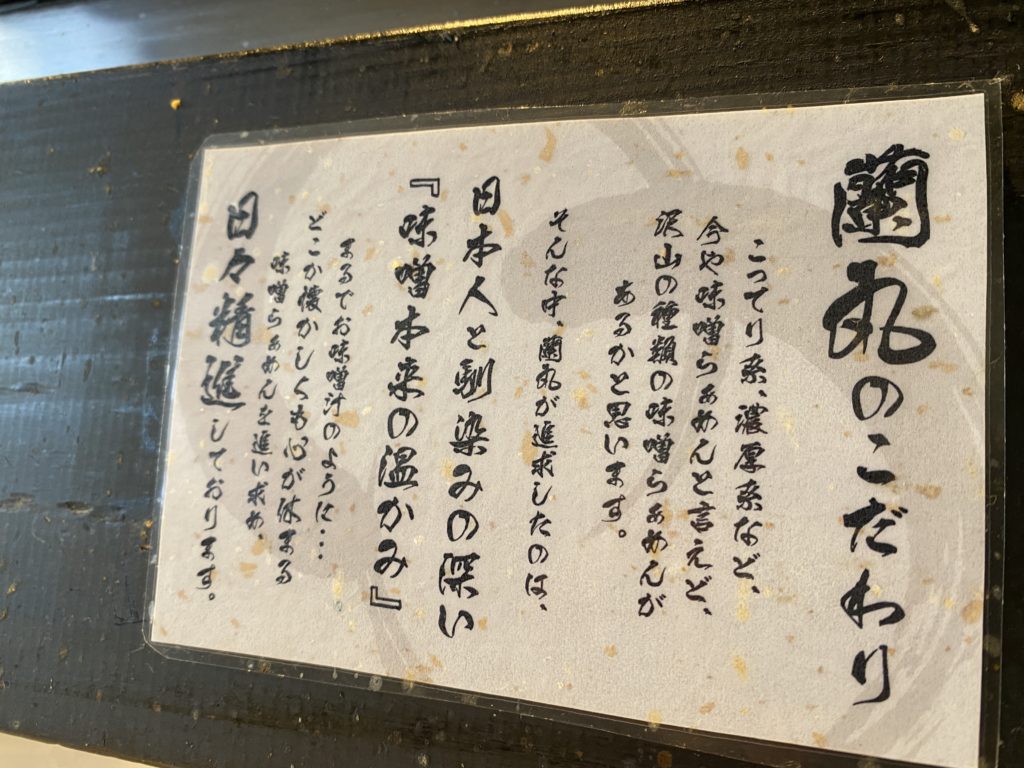 蘭丸のこだわり
こってり系、濃厚系など、
今や味噌らぁめんと言えど、
沢山の種類の味噌らぁめんが
あるかと思います。
そんな中、蘭丸が追求したのは、
日本人と馴染みの深い
『味噌本来の温かみ』
まるでお味噌汁のように…
どこか懐かしくも心が休まる
味噌らぁめんを追い求め、
日々精進しております。